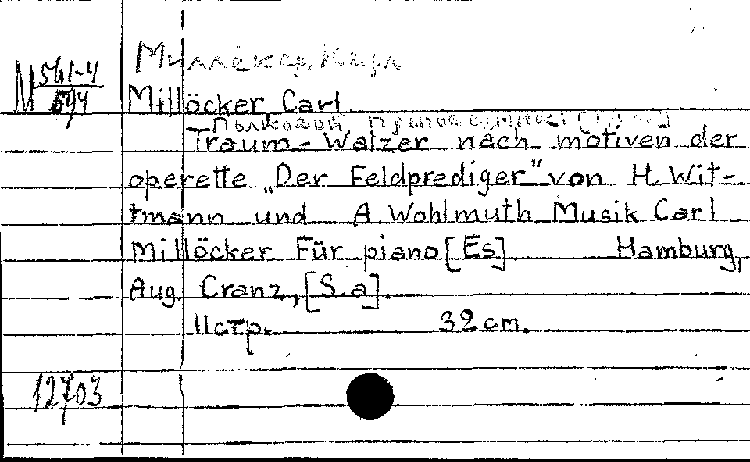 Миллёкер, Карл
М 561-4
594
Millöcker Carl.
Traum-Walzer nach motiven der
operette „Der Feldprediger" von H. Wit-
tmann und A. Wohlmuth Musik Carl
Millöcker Für piano [Es] Hamburg,
Aug. Cranz, [S.a].
11стр. 32 cm.
12703